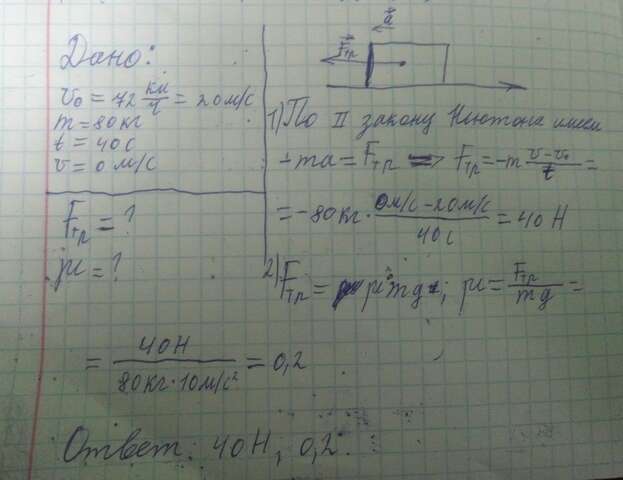 Дано:
v₀ = 72 км/ч = 20 м/с
m = 80 кг
t = 40 с
v = 0 м/с
Fтр = ?
μ = ?
a
Fтр
1) По II закону Ньютона имеем
-ma = Fтр => Fтр = -m (v - v₀)/t =
= -80 кг · (0 м/с - 20 м/с)/40 с = 40 Н
2) Fтр = μ mg; μ = Fтр/mg =
= 40 Н/(80 кг · 10 м/с²) = 0,2
Ответ: 40 Н; 0,2.